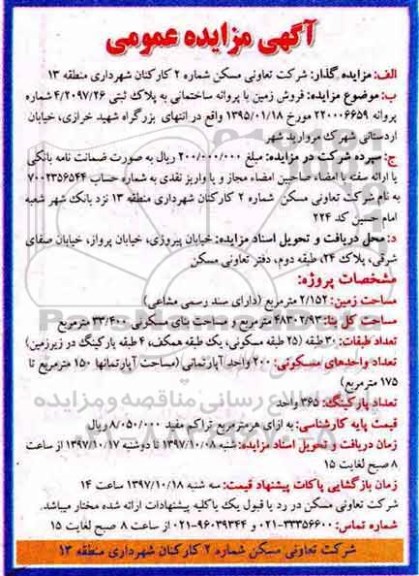 آگهی مزایده عمومی
الف: مزایده گذار: شرکت تعاونی مسکن شماره ۲ کارکنان شهرداری منطقه ۱۳
ب: موضوع مزایده: فروش زمین با پروانه ساختمانی به پلاک ثبتی ۴/۲۰۹۷/۲۶ شماره
پروانه ۲۲۰۰۰۶۶۵۹ مورخ ۱۳۹۵/۰۱/۱۸ واقع در انتهای بزرگراه شهید خرازی، خیابان
اردستانی شهرک مروارید شهر
ج: سپرده شرکت در مزایده: مبلغ ۲۰۰/۰۰۰/۰۰۰ ریال به صورت ضمانت نامه بانکی
یا ارائه سفته با امضاء صاحبین امضاء مجاز و یا واریز نقدی به شماره حساب ۷۰۰۲۳۵۶۵۴۴
به نام شرکت تعاونی مسکن شماره ۲ کارکنان شهرداری منطقه ۱۳ نزد بانک شهر شعبه
امام حسین کد ۲۲۴
د: محل دریافت و تحویل اسناد مزایده: خیابان پیروزی، خیابان پرواز، خیابان صفای
شرقی، پلاک ۲۴، طبقه دوم، دفتر تعاونی مسکن
مشخصات پروژه:
مساحت زمین: ۲/۱۵۲ مترمربع (دارای سند رسمی مشاعی)
مساحت کل بنا: ۴۸۳۰۲/۹۳ مترمربع و مساحت بنای مسکونی ۳۳/۴۰۰ مترمربع
تعداد طبقات: ۳۰ طبقه (۲۵ طبقه مسکونی، یک طبقه همکف، ۴ طبقه پارکینگ در زیرزمین)
تعداد واحدهای مسکونی: ۲۰۰ واحد آپارتمانی (مساحت آپارتمانها ۱۵۰ مترمربع تا
۱۷۵ مترمربع)
تعداد پارکینگ: ۳۶۵ واحد
قیمت پایه کارشناسی: به ازای هر مترمربع تراکم مفید ۸/۰۵۰/۰۰۰ ریال
زمان دریافت و تحویل اسناد مزایده: شنبه ۱۳۹۷/۱۰/۰۸ تا دوشنبه ۱۳۹۷/۱۰/۱۷ از ساعت
۸ صبح لغایت ۱۵
زمان بازگشایی پاکات پیشنهاد قیمت: سه شنبه ۱۳۹۷/۱۰/۱۸ ساعت ۱۴
شرکت تعاونی مسکن در رد یا قبول یک یا کلیه پیشنهادات ارائه شده مختار میباشد.
شماره تماس: ۳۳۳۵۶۶۰۰-۰۲۱ و ۹۶۰۳۹۳۴۴-۰۲۱ از ساعت ۸ صبح لغایت ۱۵
شرکت تعاونی مسکن شماره ۲ کارکنان شهرداری منطقه ۱۳